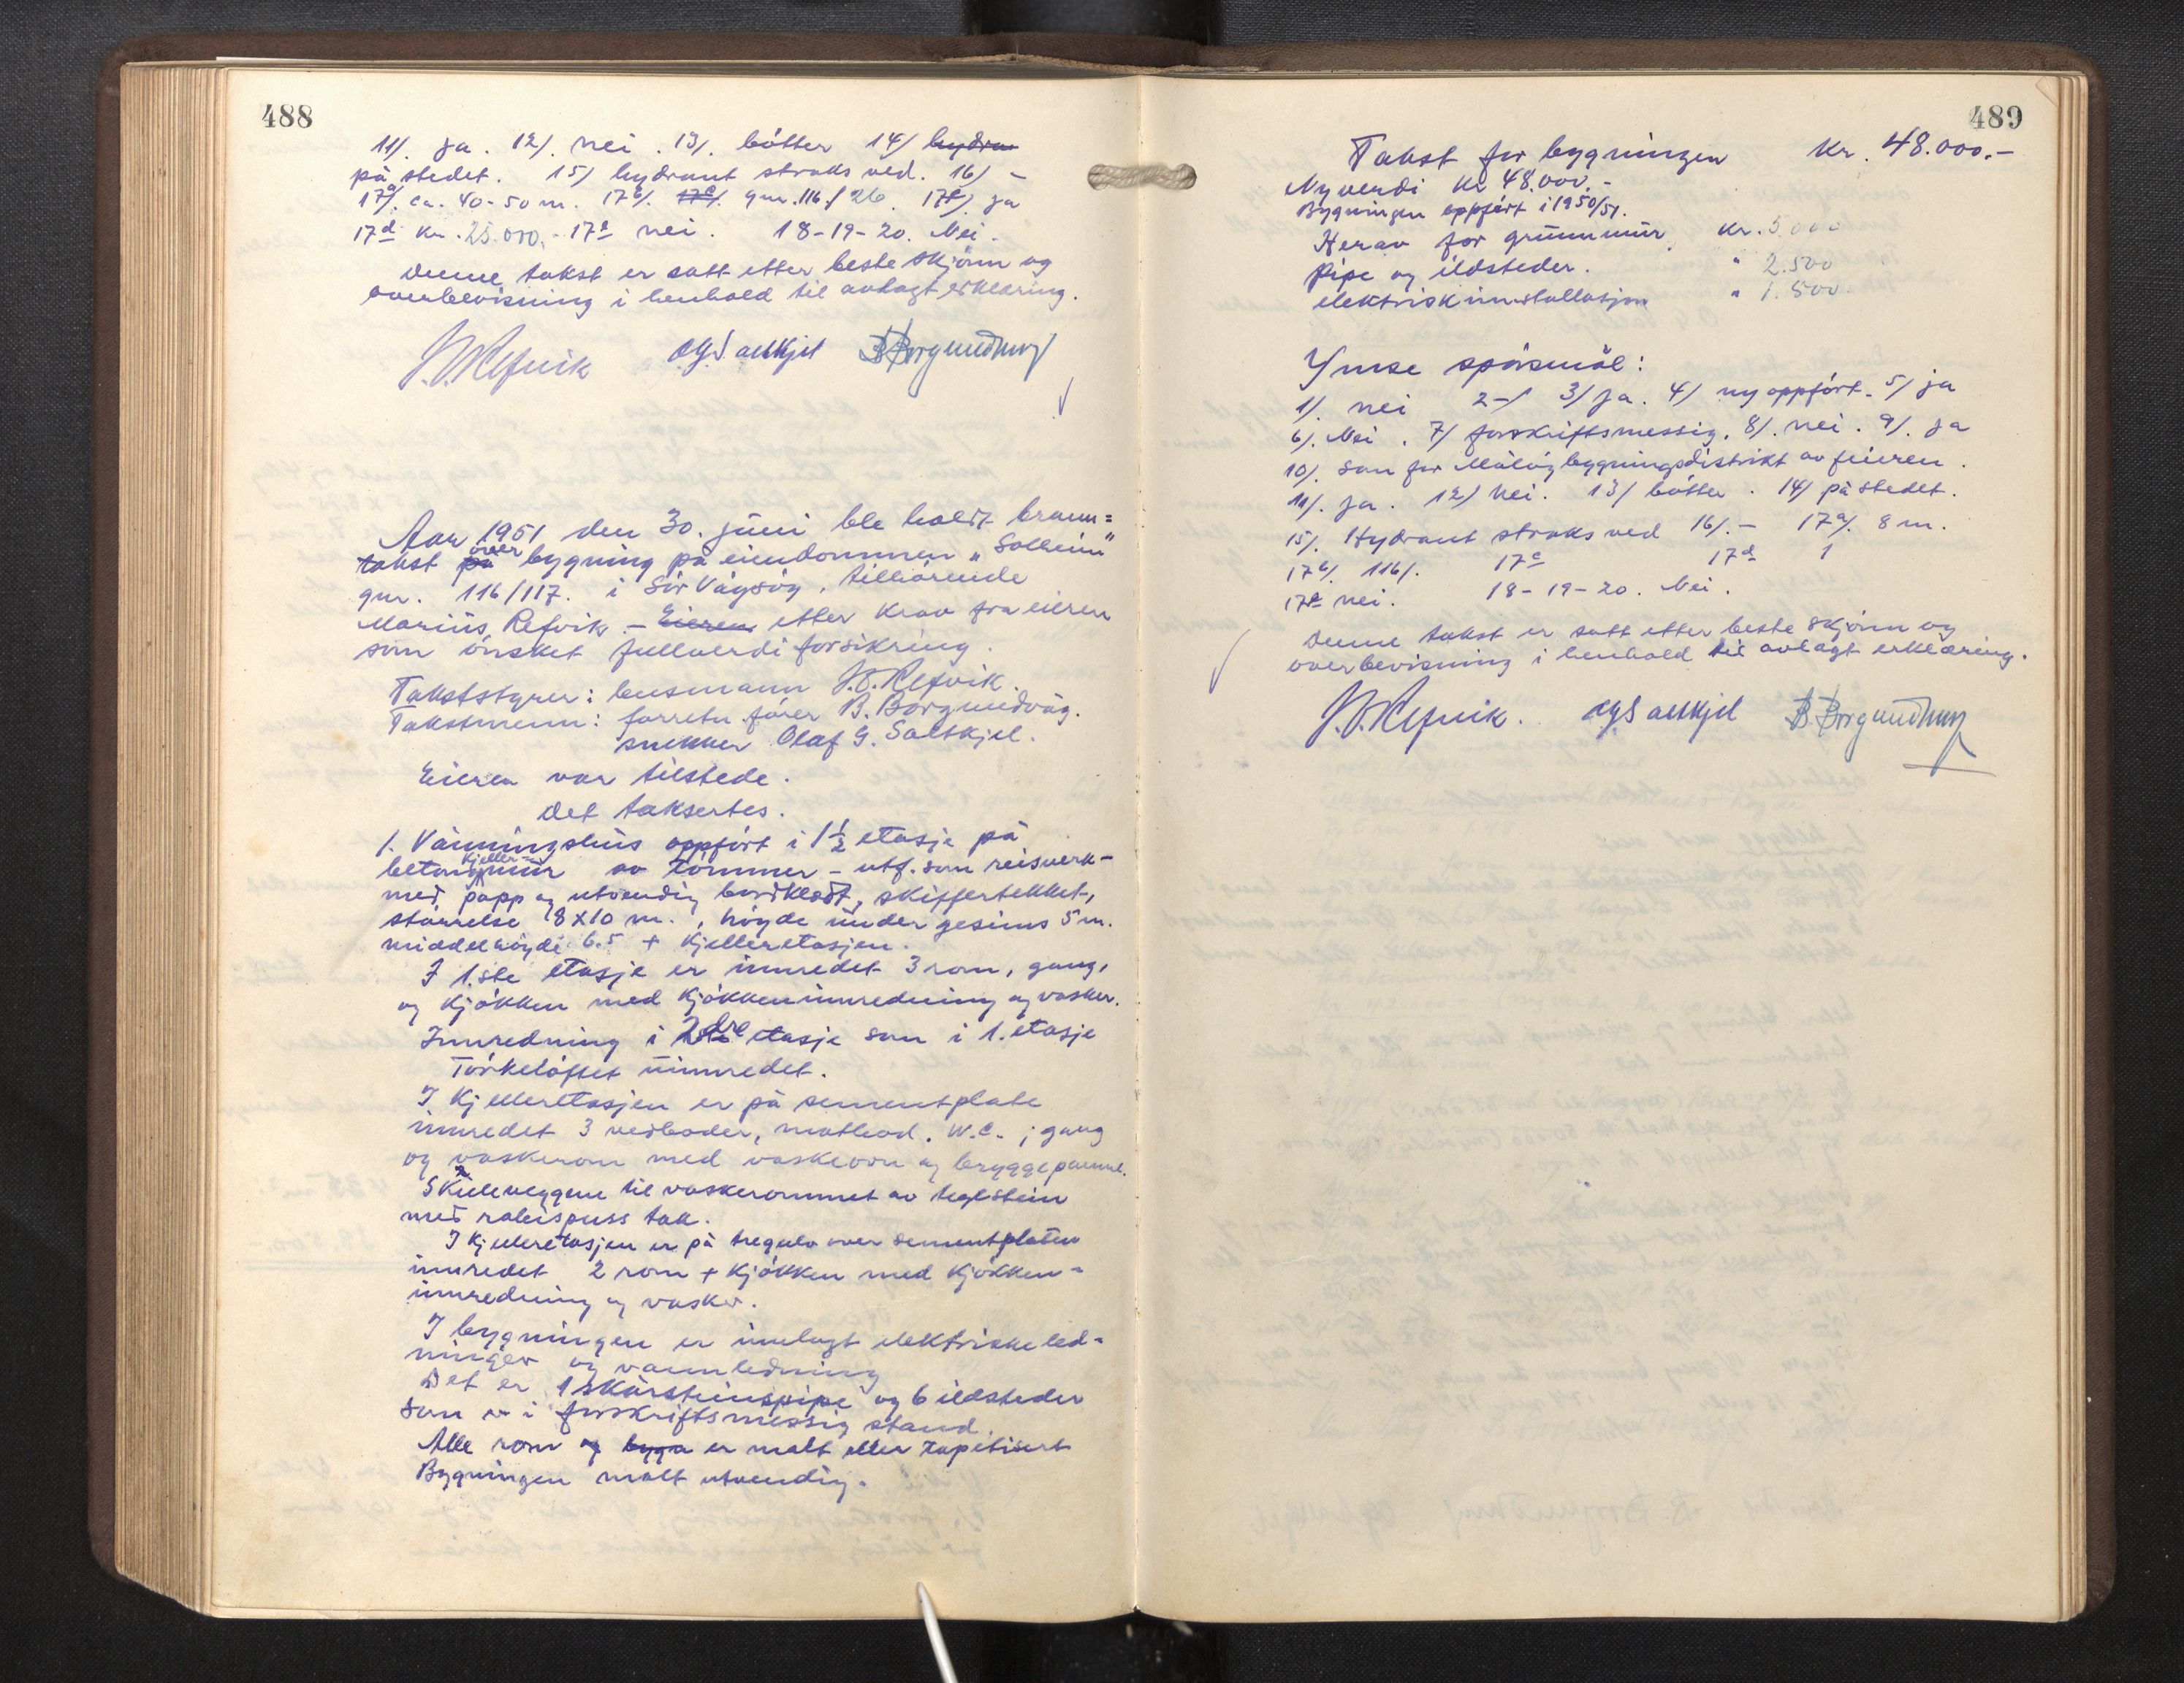 488
11/. ja. 12/. nei. 13/. bötter 14/ hydran
på stedet. 15/ hydrant straks ved. 16/ -
17a/. ca. 40-50 m. 17b/. 17c/. gnr. 116/26. 17c/. ja
17d kr. 25.000,- 17e nei. 18-19-20. Nei.
Denne takst er satt etter beste skjönn og
overbevisning i henhold til avlagt erklæring.
J.O.Refvik OGSaltkjel BBorgundvåg
Aar 1951 den 30. juni ble holdt brann=
takst på över bygning på eiendommen "Solheim"
gnr. 116/117. i Sör Vågsöy, tilhörende
Marius Refvik - Eieren etter krav fra eieren
som önsket fullverdiforsikring.
Takststyrer: lensmann J.O.Refvik.
Takstmenn: forretn.förer B. Borgundvåg.
snekker Olaf G. Saltkjel.
Eieren var tilstede.
Det taksertes.
1. Våningshus oppfört i 1½ etasje på
betong kjeller= mur av tömmer - utf. som reisverk -
med papp og utvendig bordkledt, skiffertekket,
störrelse 8x10 m., höyde under gesims 5 m.
middelhöyde 6.5 + kjelleretasjen.
I 1.ste etasje er innredet 3 rom, gang,
og kjökken med kjökkeninnredning og vasker.
Innredning i 2dre etasje som i 1. etasje
Törkeloftet uinnredet.
I kjelleretasjen er på sementplate
innredet 3 vedboder, matbod. W.C. ; gang
og vaskerom med vaskeovn og bryggepanne.
Skilleveggene til vaskerommet av teglstein
med rabispuss tak.
I kjelleretasjen er på tregulv over sementplaten
innredet 2 rom + kjökken med kjökken=
innredning og vasker.
I bygningen er innlagt elektriske led=
ninger og vannledning
Det er 1 skorsteinspipe og 6 ildsteder
som er i forskriftsmessig stand.
Alle rom og bygn er malt eller tapetisert
Bygningen malt utvendig.
489
Takst for bygningen kr. 48.000.-
Nyverdi kr 48.000.-
Bygningen oppfört i 1950/51.
Herav for grunnmur kr. 5.000
pipe og ildsteder. " 2.500
elektrisk innstallasjon " 1.500
Ymse spörsmål:
1/. nei 2-/ 3/ ja. 4/ ny oppfört. 5/ ja
6/. Nei. 7/ forskriftsmessig. 8/. nei. 9/. ja
10/. som for Målöy bygningsdistrikt av feieren.
11/. ja. 12/ nei. 13/ bötter. 14/ på stedet.
15/. Hydrant straks ved 16/. - 17a/. 8 m.
17b/. 116/. 17c 17d 1
17e nei. 18-19-20. Nei.
Denne takst er satt etter beste skjönn og
overbevisning i henhold til avlagt erklæring.
J.O.Refvik. OGSaltkjel B.Borgundvåg